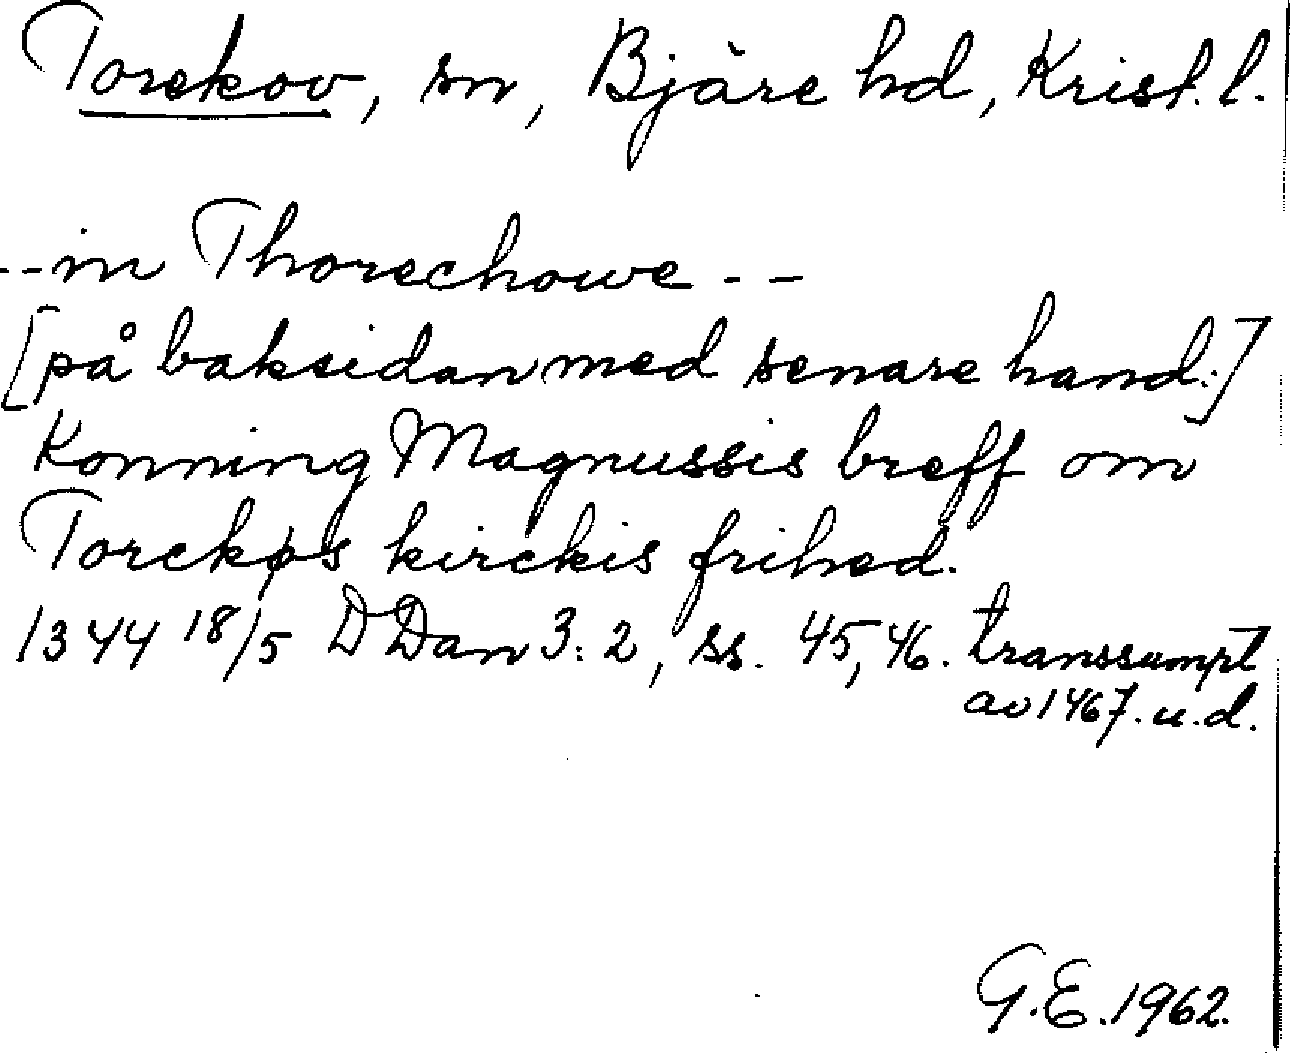 Torekov, sn, Bjäre hd, Krist. l.
-- in Thorechowe --
[på baksidan med senare hand:]
Konning Magnussis breff om
Torekøs kirckis frihed.
1344 18/5 DDan 3:2, ss. 45, 46. transsumpt
av 1467. u.d.
G.E. 1962.